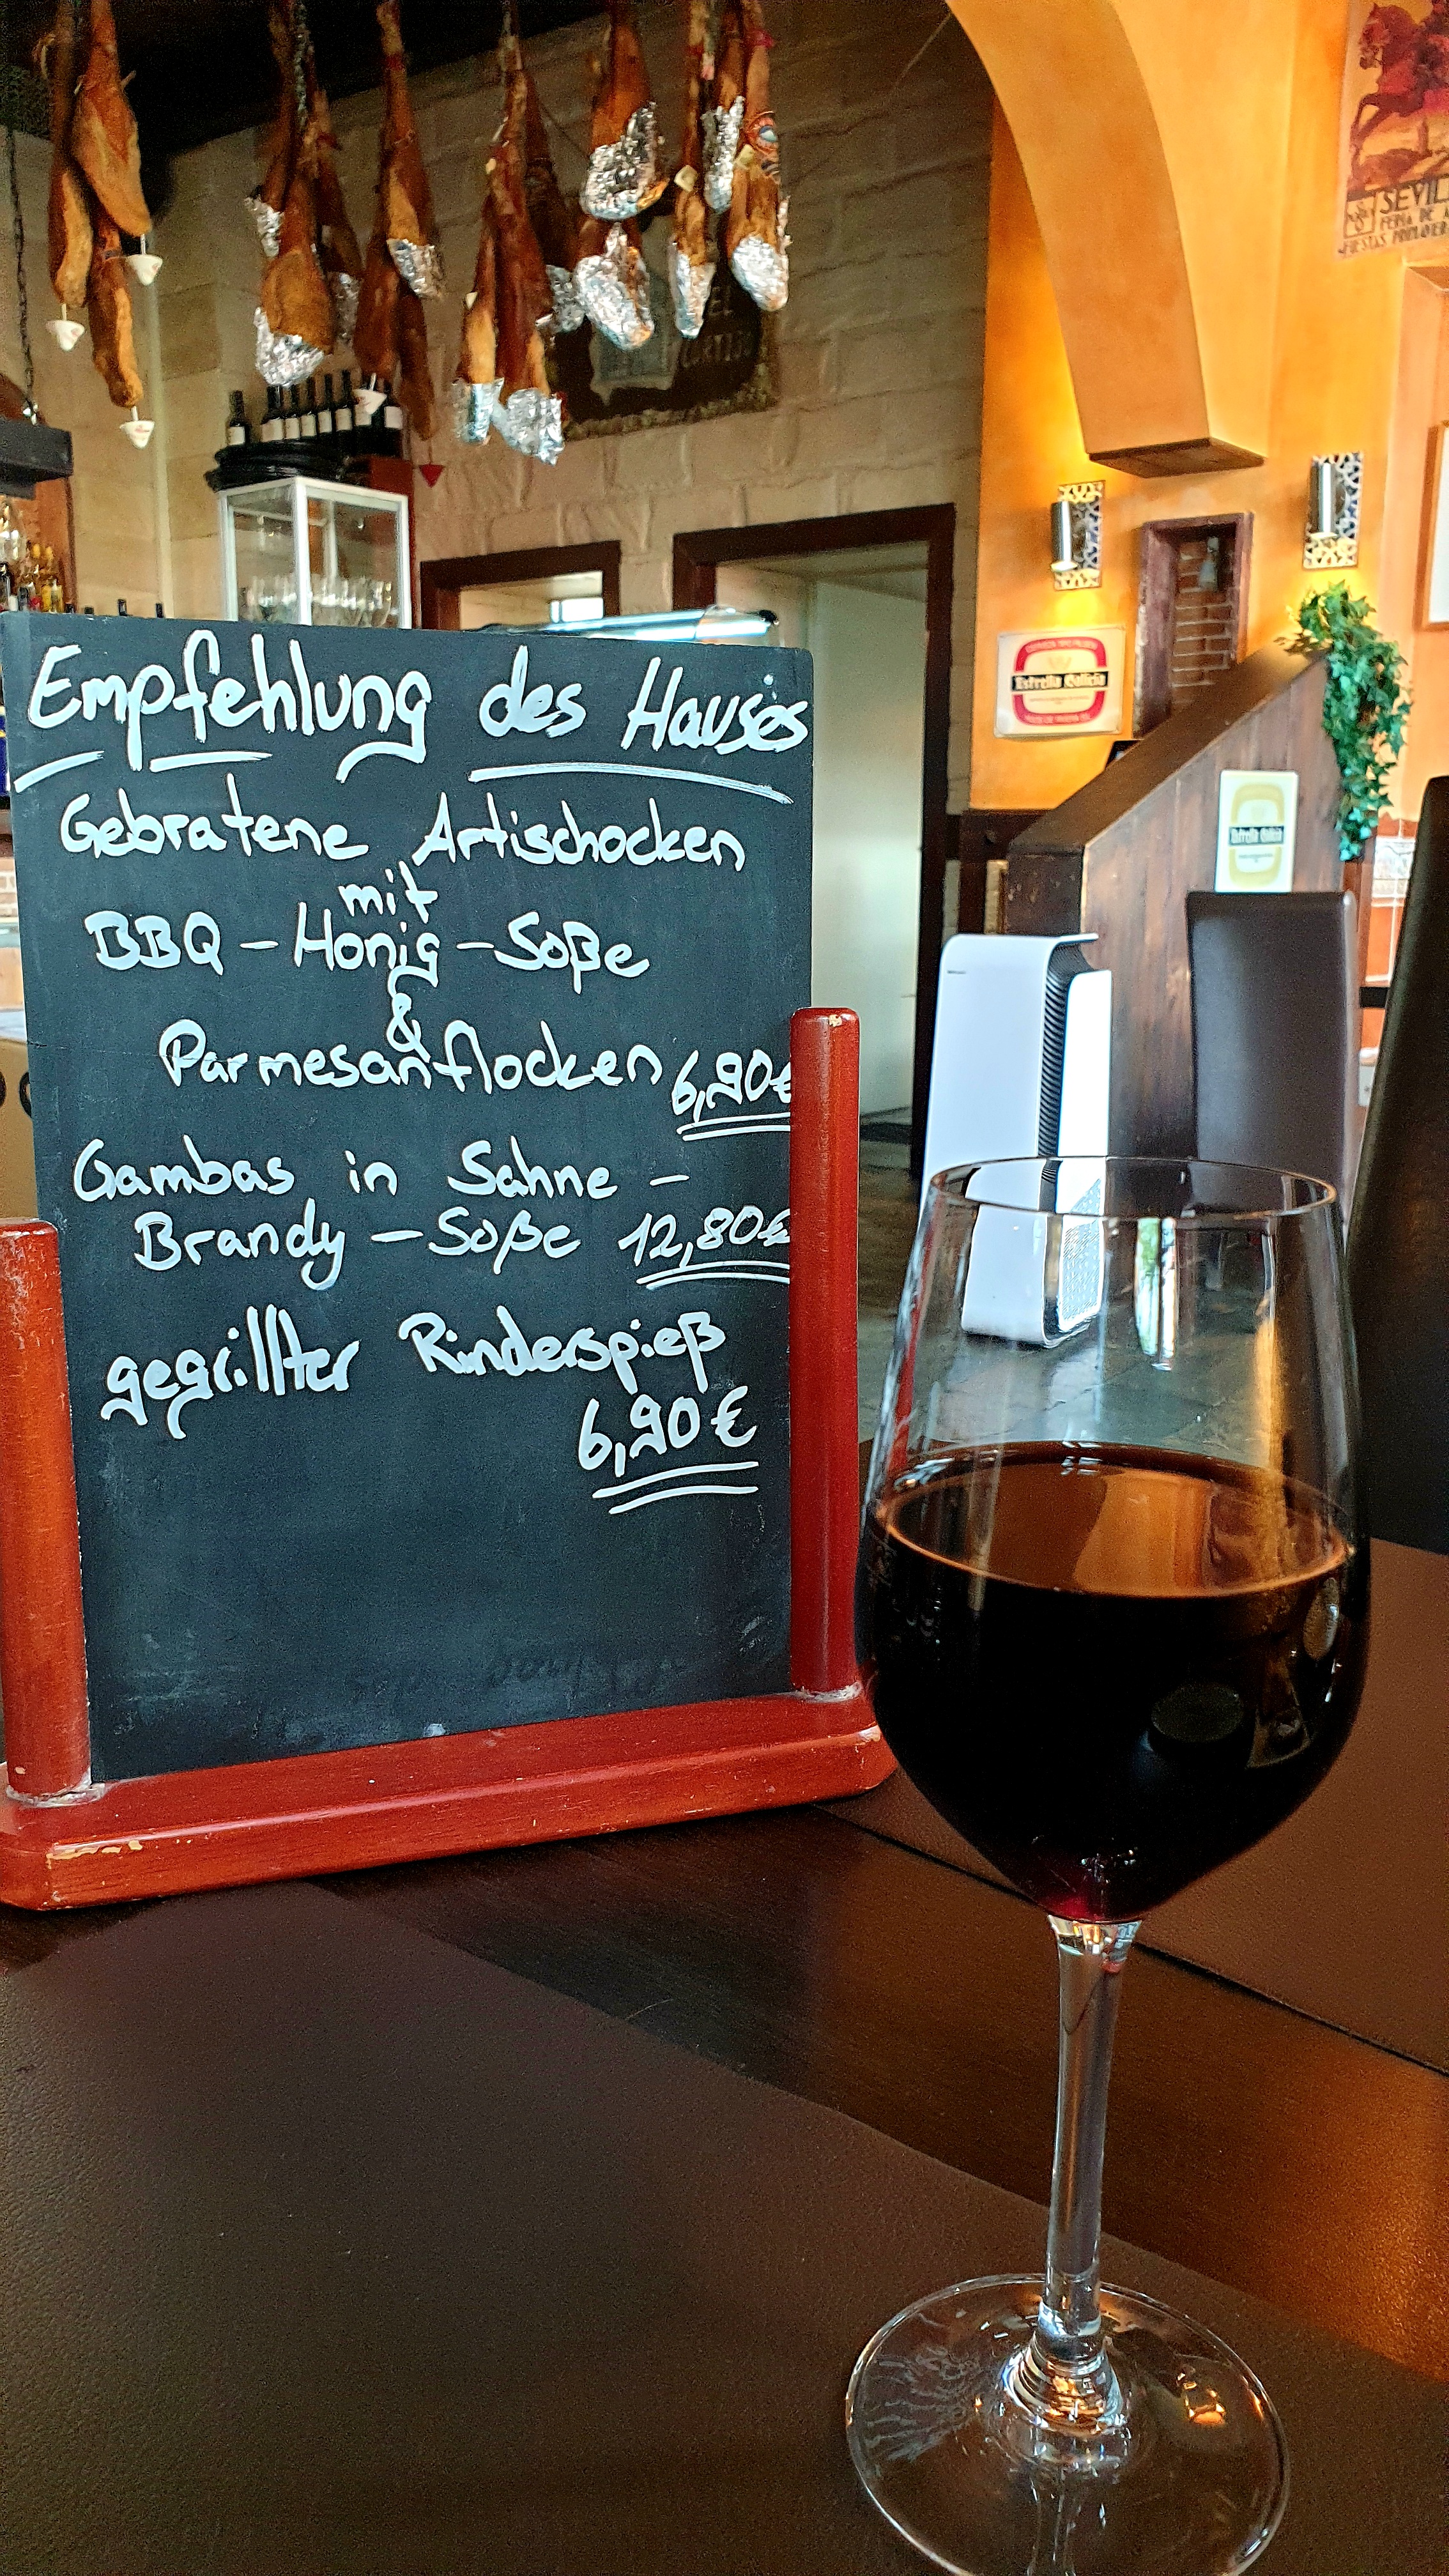 Empfehlung des Hauses
Gebratene Artischocken
mit
BBQ - Honig - Soße
&
Parmesanflocken 6,90€
Gambas in Sahne -
Brandy - Soße 12,80€
gegrillter Rinderspieß
6,90€
SEVIL
FERIA DE A
FIESTAS PRIMAVER
EL
Estrella Galicia
Estrella Galicia